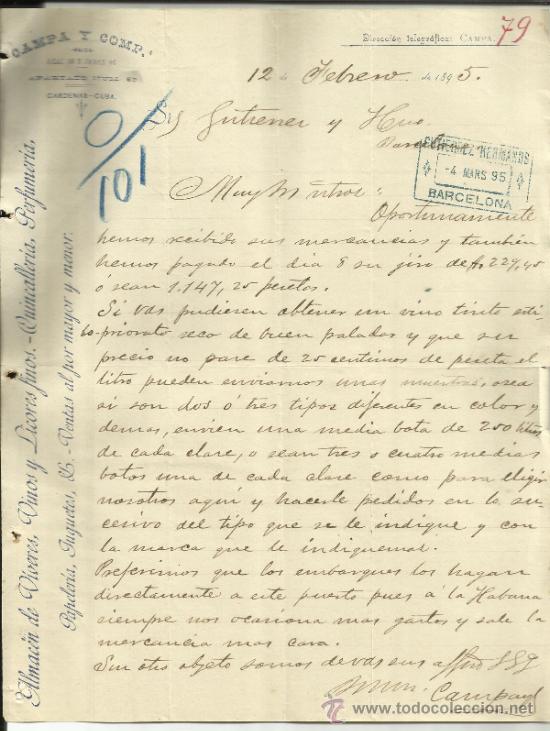 CAMPA Y COMP.
APARTADO NUM.
CARDENAS-CUBA.
Dirección telegráfica: CAMPA.
79
12 de Febrero de 1895.
0/101
Gutierrez y Hno.
Barcelona
GUTIERREZ HERMANOS
-4 MARS 95
BARCELONA
Muy Sr. ntros:
Oportunamente
hemos recibido sus mercancias y tambien
hemos pagado el dia 8 su jiro de 229,45
ó sean 1.147,25 pesetas.
Si vds pudiesen obtener un vino tinto esti-
lo priorato seco de buen paladar y que su
precio no pase de 25 centimos de peseta el
litro pueden enviarnos unas muestras, osea
si son dos ó tres tipos diferentes en color y
demas, envien una media bota de 250 litros
de cada clase, o sean tres o cuatro medias
botas una de cada clase como para eligir
nosotros aquí y hacerle pedidos en lo su-
cesivo del tipo que se le indique y con
la marca que le indiquemos.
Preferimos que los embarques los hagan
directamente a este puerto pues á la Habana
siempre nos ocasiona mas gastos y sale la
mercancia mas cara.
Sin otro objeto somos de vds sus affmos SS
Campa y
Almacén de Víveres, Vinos y Licores finos.-Quincallería, Perfumería,
Papelería, Juguetes, &.-Ventas al por mayor y menor.
todocoleccion.net